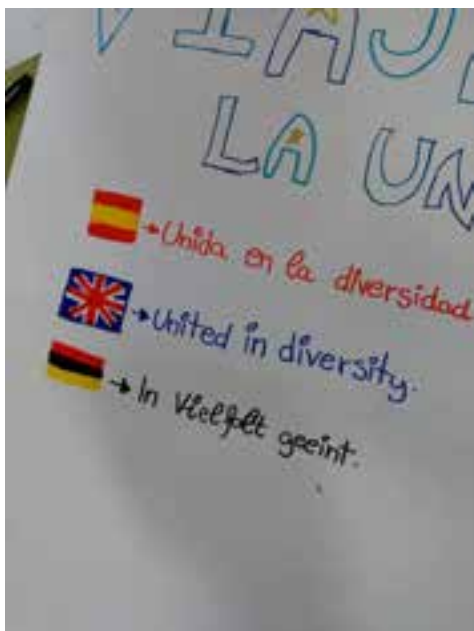 VIAJ
LA UN
→Unida en la diversidad
→United in diversity.
→In Vielfalt geeint.